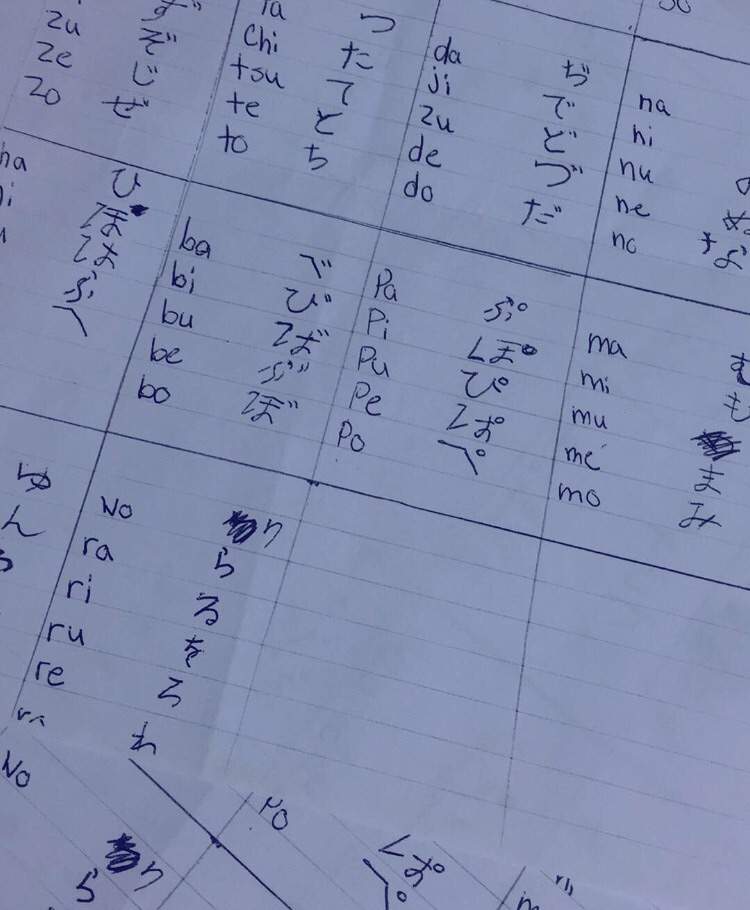 zu ず
ze ぞ
zo じ
ぜ
chi つ
tsu た
te て
to と
ち
da ぢ
ji で
zu ど
de づ
do だ
na
ni
nu
ne
no
ひ
ほ
は
ふ
へ
ba べ
bi び
bu ば
be ぶ
bo ぼ
Pa ぷ
Pi ぽ
Pu ぴ
Pe ぱ
Po ぺ
ma む
mi も
mu
me ま
mo み
ゆ
ん
wo り
ra ら
ri る
ru を
re ろ
れ
wo
り
ら
Po
ぽ
ぺ